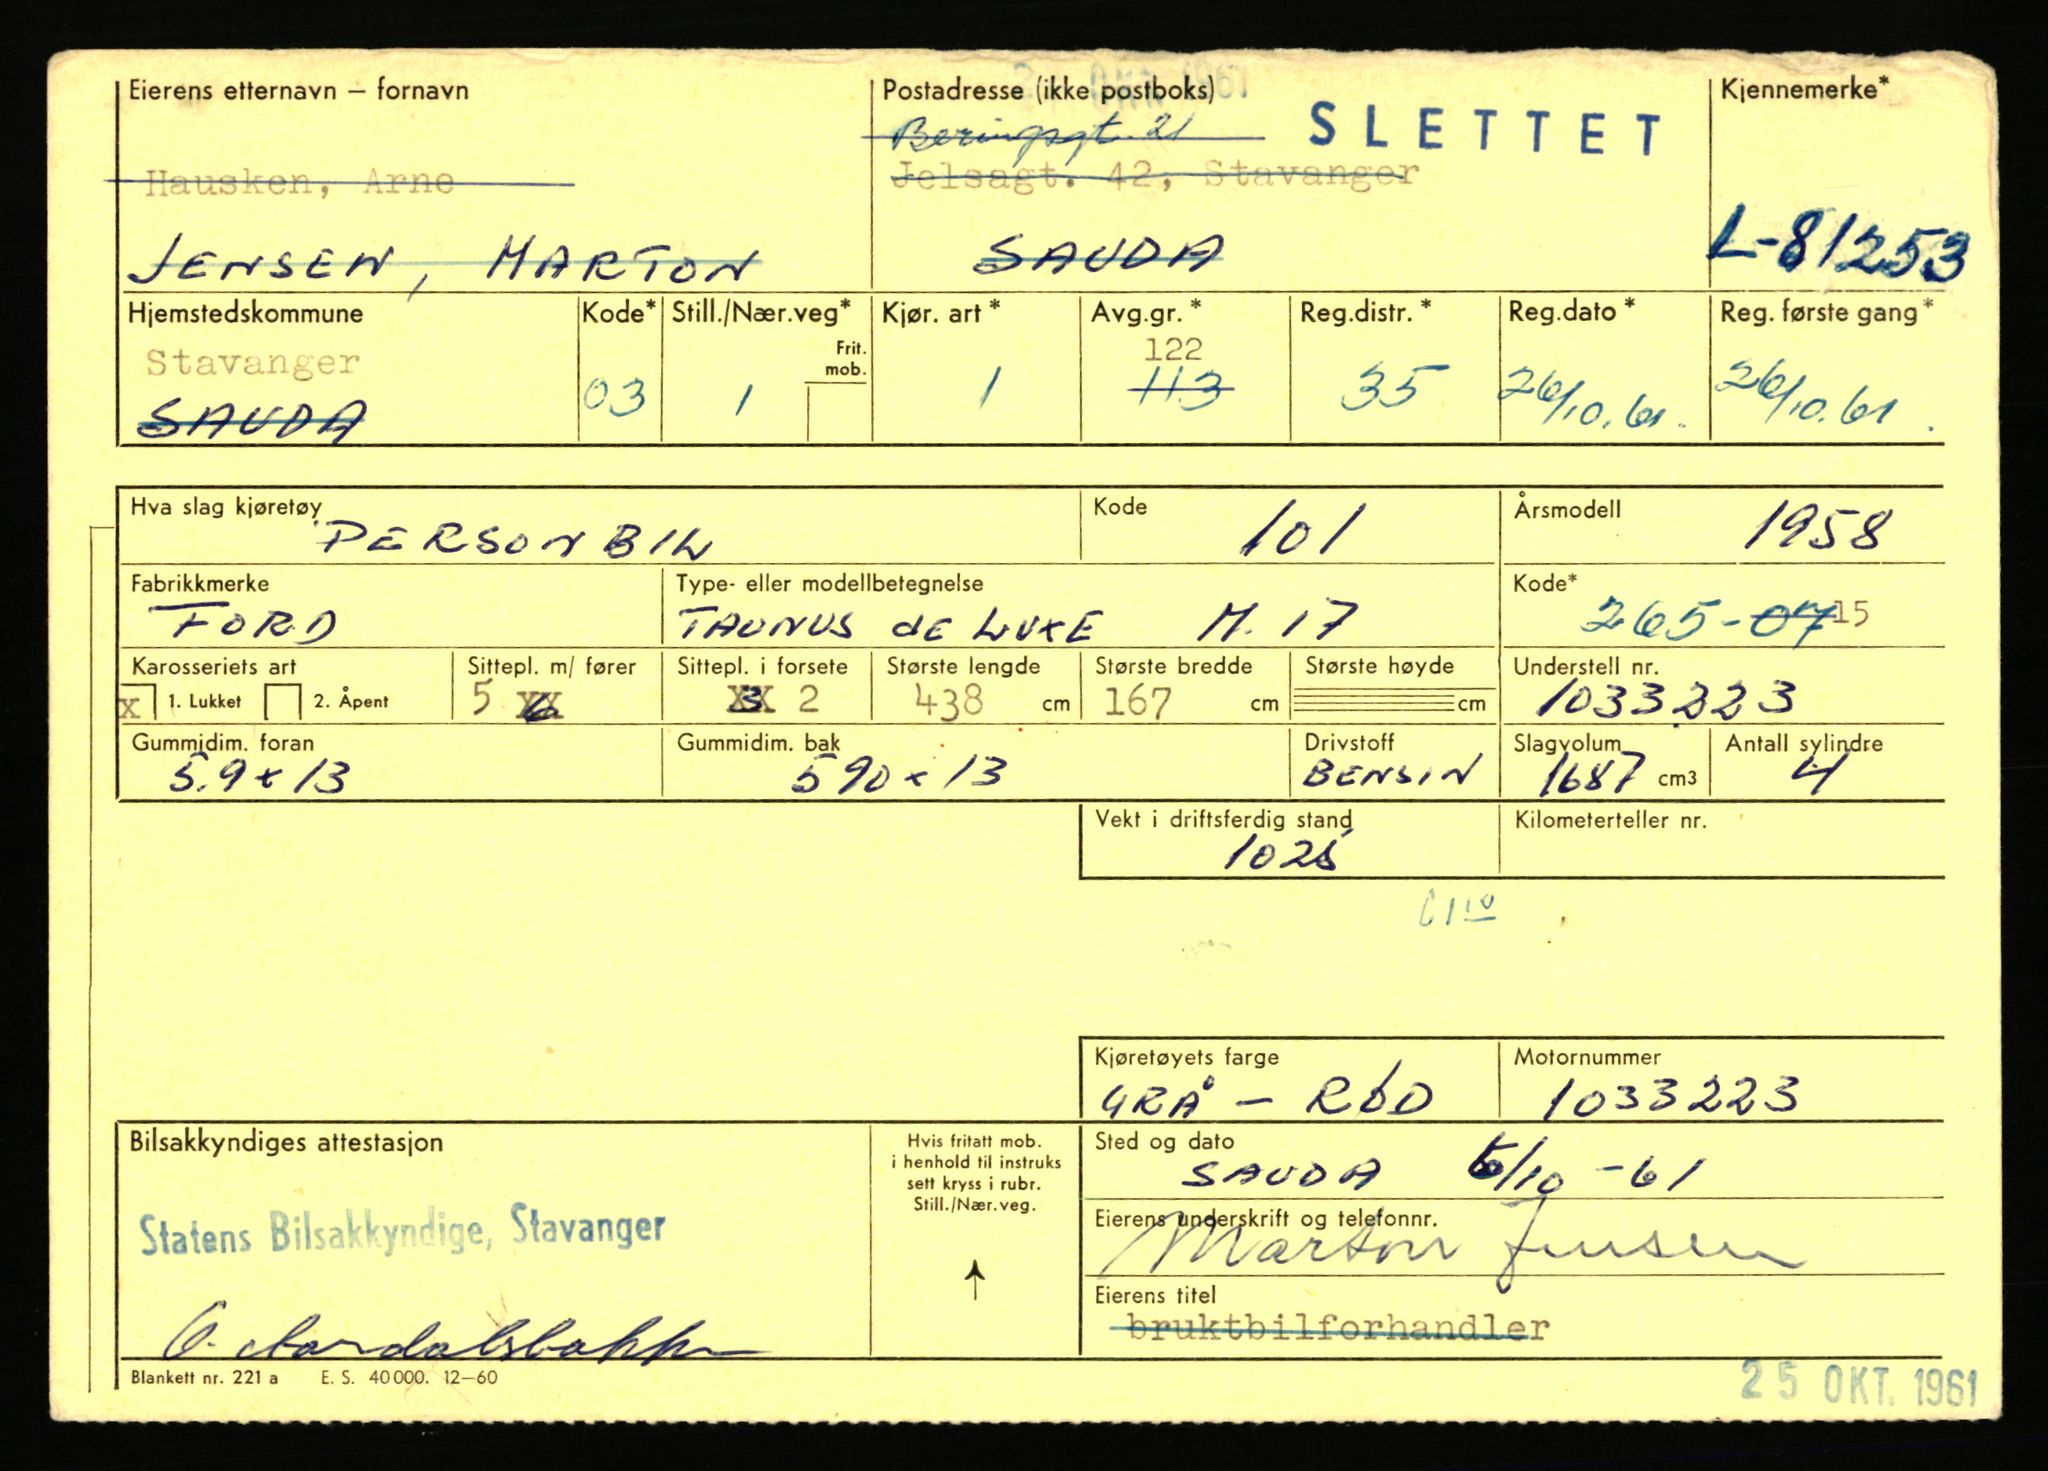 Eierens etternavn – fornavn
Postadresse (ikke postboks)
Kjennemerke*
Beringsgt. 21
SLETTET
Hausken, Arne
Jelsagt. 42, Stavanger
JENSEN, MARTON
SAUDA
L-81253
Hjemstedskommune
Kode*
Still./Nær.veg*
Kjør. art*
Avg.gr.*
Reg.distr.*
Reg.dato*
Reg. første gang*
Stavanger
Frit. mob.
122
SAUDA
03
1
1
113
35
26/10.61.
26/10.61.
Hva slag kjøretøy
PERSONBIL
Kode
101
Årsmodell
1958
Fabrikkmerke
FORD
Type- eller modellbetegnelse
TAUNUS de LUXE M. 17
Kode*
265-07 15
Karosseriets art
x 1. Lukket 2. Åpent
Sittepl. m/ fører
5 6
Sittepl. i forsete
3 2
Største lengde
438 cm
Største bredde
167 cm
Største høyde
cm
Understell nr.
1033223
Gummidim. foran
5.9 x 13
Gummidim. bak
590 x 13
Drivstoff
BENSIN
Slagvolum
1687 cm3
Antall sylindre
4
Vekt i driftsferdig stand
1025
Kilometerteller nr.
Kjøretøyets farge
GRÅ – RØD
Motornummer
1033223
Bilsakkyndiges attestasjon
Hvis fritatt mob.
i henhold til instruks
sett kryss i rubr.
Still./Nær.veg.
Sted og dato
SAUDA 6/10 -61
Statens Bilsakkyndige, Stavanger
Eierens underskrift og telefonnr.
Marton Jensen
Eierens titel
bruktbilforhandler
Blankett nr. 221 a E. S. 40000. 12–60
25 OKT. 1961